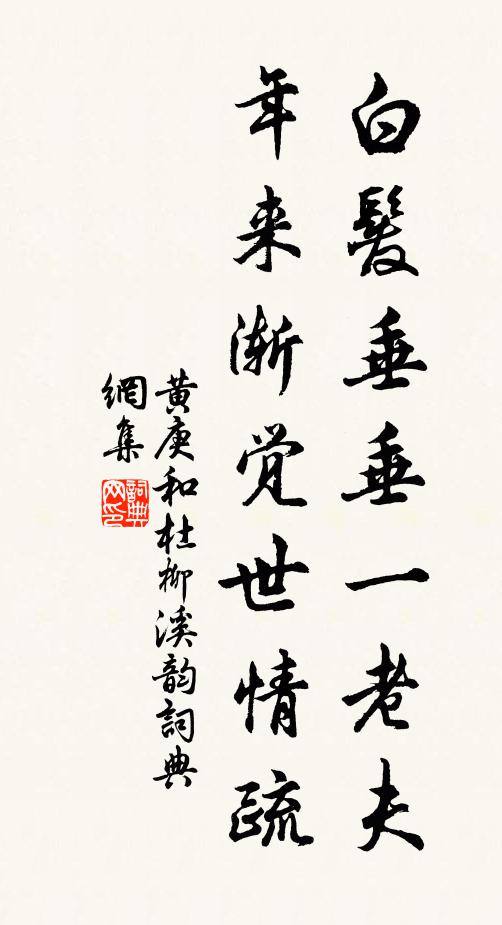 白髮垂垂一老夫
年来漸覺世情疏
黄庚和杜柳溪韵詞典
網集
詞典網印